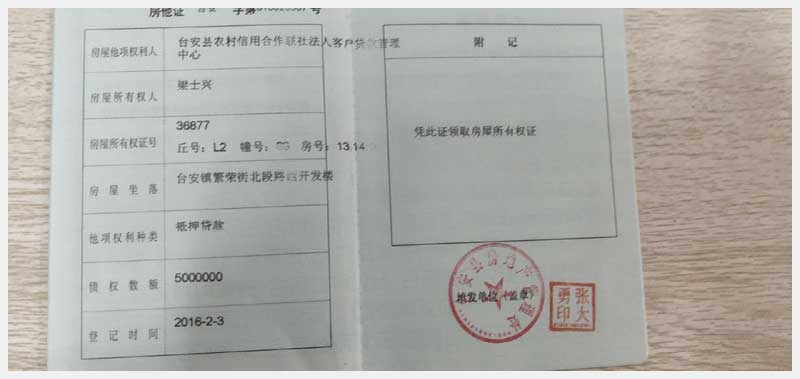 房他证 台安 字第 号
房屋他项权利人 台安县农村信用合作联社法人客户贷款管理
中心
房屋所有权人 梁士兴
房屋所有权证号 36877
丘号：L2 幢号： 房号：13.14
房屋坐落 台安镇繁荣街北段路西开发楼
他项权利种类 抵押贷款
债权数额 5000000
登记时间 2016-2-3
附记
凭此证领取房屋所有权证
填发单位（盖章）
台安县房地产管理处
张大勇印